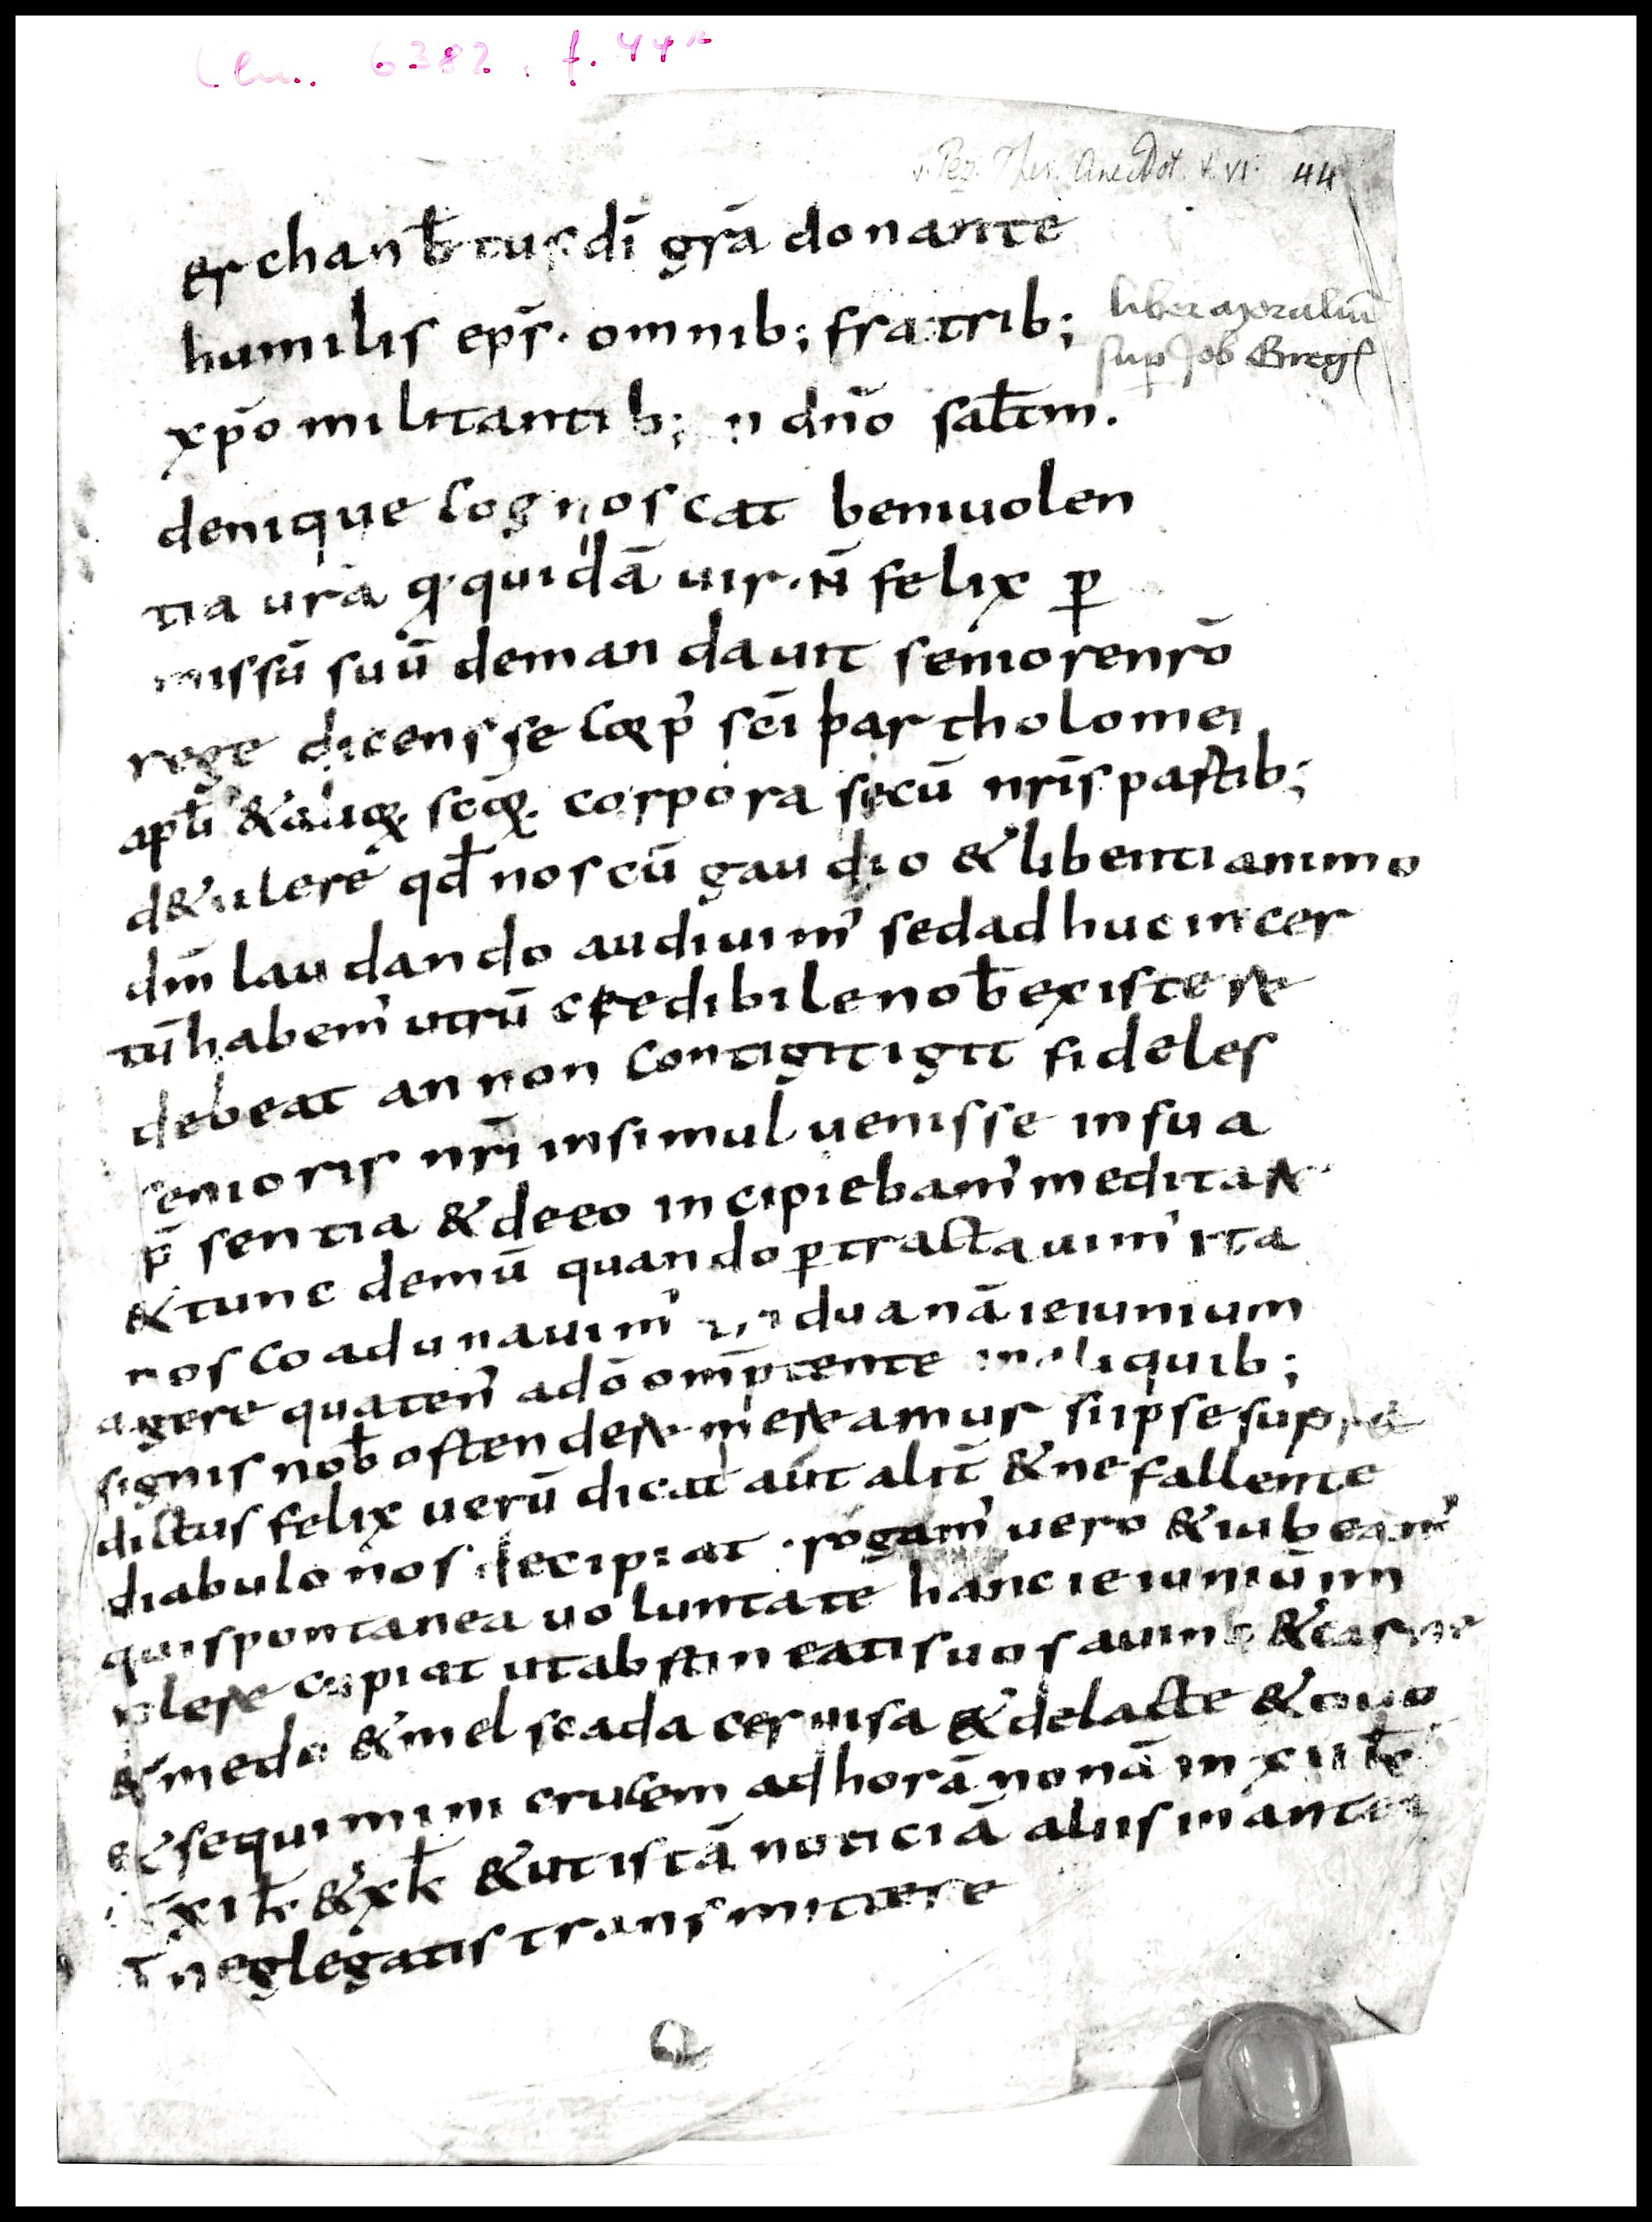 Clm. 6382. f. 44r
v. Pez. Thes. Anecdot. t. VI. 44
erchanƀtus dī grā donante
humilis ep̄s. omnib; fratrib;
liber moraliū
sup Job Greg
xp̄o militantib; n dn̄o sal̄tm.
denique cognoscat beniuolen
tia urā q quidā uir. N̄ felix p̲
missū suū demandauit seniorenrō
rege dicens se corp' sc̄i bartholomei
aptl̄i &alioꝝ scōꝝ. corpora secū nr̄is partib;
d&ulere qd̄ nos cū gaudio & libenti animo
dm̄ laudando audiuim' sed adhuc incer
tū habem' utrū credibile noƀ existere
debeat an non contigitigit fideles
senioris nr̄i insimul uenisse in sua
p̄sentia & de eo incipiebam' meditare
& tunc demū quando ꝑtractauim' ita
nos coadunauim' duanā ieiunium
agere quaten' a dō omp̄tente in aliquib;
signis noƀ ostendere mereamur si ipse supra
dictus felix uerū dicat aut alit̄ & ne fallente
diabulo nos decipiat. rogam' uero & iubeam'
qui spontanea uoluntate hanc ieiuniū im
plere cupiat ut abstineatis uos a uino & carne
& medo & mel scada ceruisa & de lacte & ouo
& sequimini crucem ad horā nonā in xii k̄
xi k̄ & x k̄ & ut istā noticiā aliis in antea
n̄ neglegatis transmittere